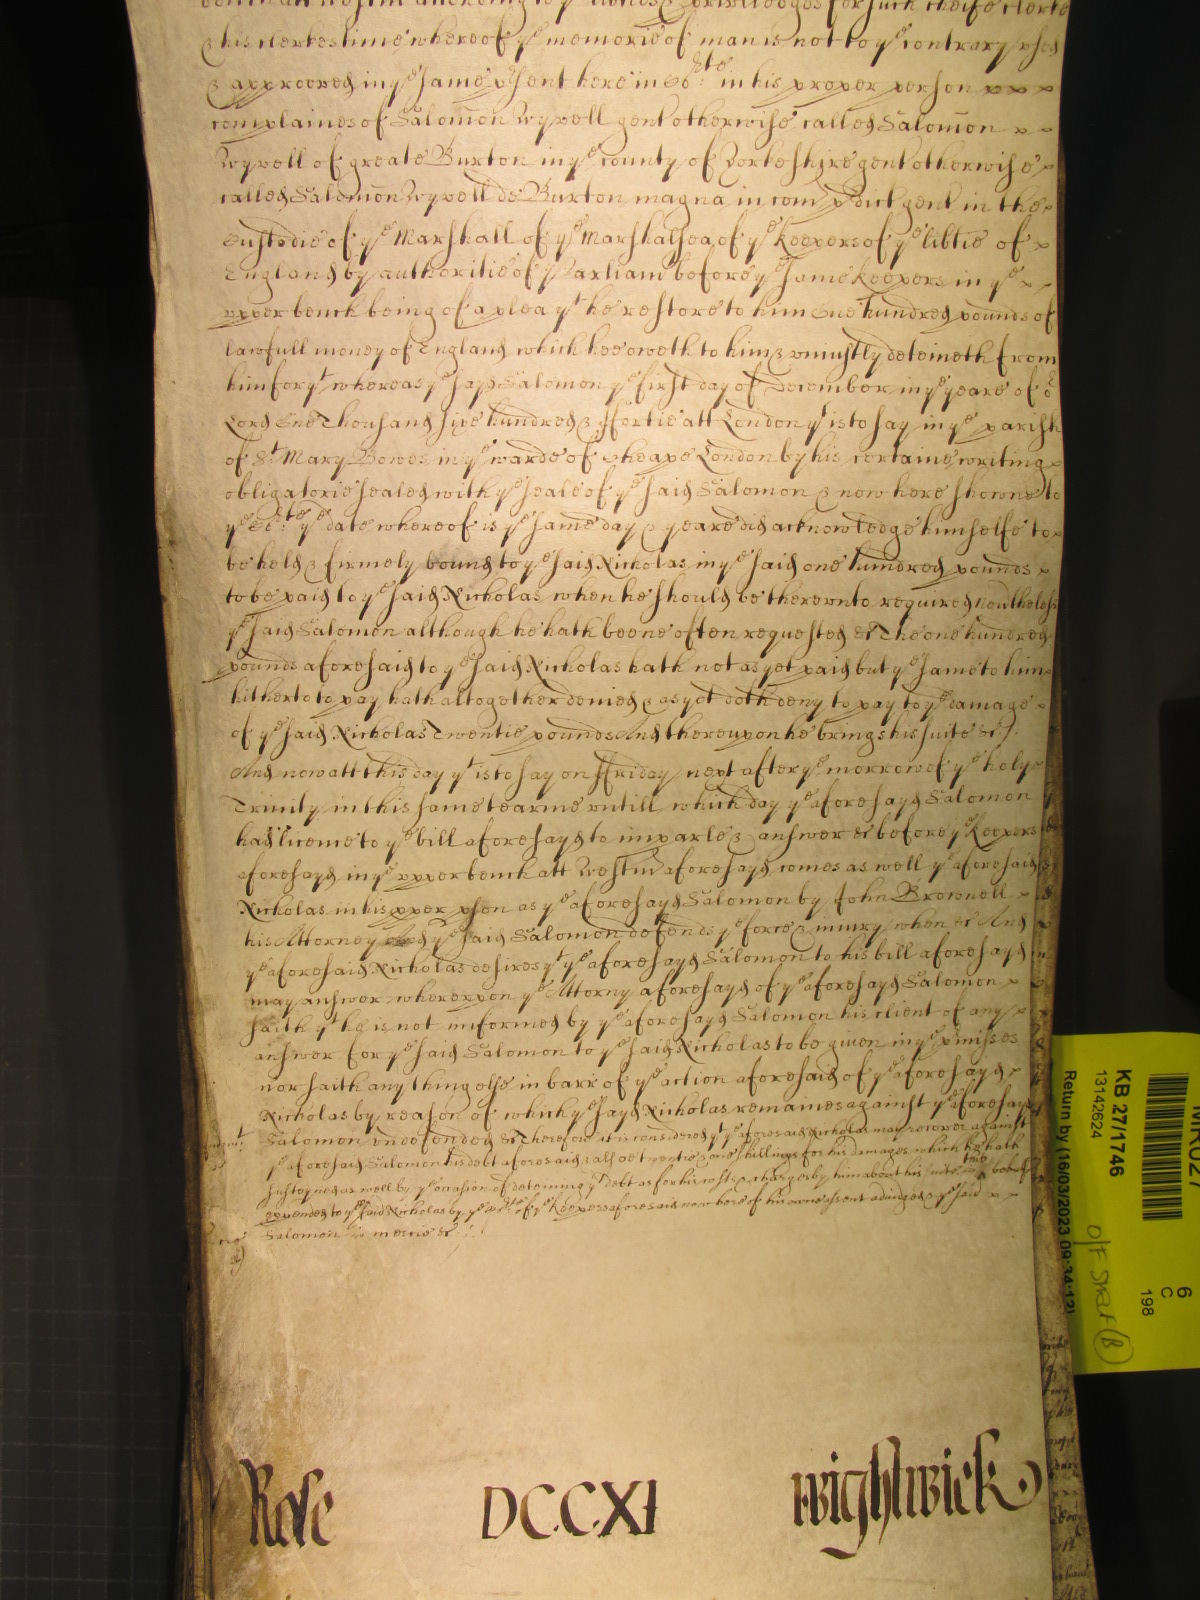 & his clerkes time whereof ye memorie of man is not to ye contrary vsed
& approoved in ye same p'sent here in Co:rte in his proper person
complaines of Salomon Wyvell gent otherwise called Salomon
Wyvell of greate Burton in ye county of Yorkeshire gent otherwise
called Salomon Wyvell de Burton magna in com p'dict gent in the
Custodie of ye Marshall of ye Marshalsea of ye keepers of ye libtie of
England by authoritie of Parliam before ye same keepers in ye
vpper bench being of a plea yt he restore to him One hundred pounds of
lawfull money of England which hee oweth to him & vniustly deteineth from
him for yt whereas ye sayd Salomon ye first day of December in ye yeare of
Lord One Thousand sixe hundred & ffortie att London yt is to say in ye parish
of St Mary Bowes in ye warde of Cheape London by his certaine writing
obligatorie sealed with ye seale of ye said Salomon & now here showne to
ye Co:rte ye date whereof is ye same day & yeare did acknowledge himselfe to
be held & firmely bound to ye said Nicholas in ye said one hundred pounds
to be paid to ye said Nicholas when he should be therevnto required neu'theless
ye said Salomon although he hath beene often requested &c The one hundred
pounds aforesaid to ye said Nicholas hath not as yet paid but ye same to him
hitherto to pay hath altogether denied & as yet doth deny to pay to ye damage
of ye said Nicholas Twentie pounds And thereupon he brings his suite &c
And now att this day yt is to say on ffriday next after ye morrow of ye holy
Trinity in this same tearme vntill which day ye aforesayd Salomon
had licence to ye bill aforesayd to imparle & answer &c before ye Keepers
aforesayd in ye vpper bench att Westm' aforesayd comes as well ye aforesaid
Nicholas in his pper pson as ye aforesayd Salomon by John Brownell
his Attorney And ye said Salomon defends ye force & iniury when &c And
ye aforesaid Nicholas desires yt ye aforesayd Salomon to his bill aforesayd
may answer wherevpon ye Attorny aforesayd of ye aforesayd Salomon
saith yt he is not informed by ye aforesayd Salomon his client of any
answer for ye said Salomon to ye said Nicholas to be given in ye p'misses
nor saith any thing else in barr of ye action aforesaid of ye aforesayd
Nicholas by reason of which ye sayd Nicholas remaines against ye aforesayd
Salomon vndefended &c Therefore it is considered yt ye aforesaid Nicholas may recover against
ye aforesaid Salomon his debt aforesaid & alsoe twentie & one shillings for his damages which he hath
susteyned as well by ye occasion of deteining ye debt as for his costs & charges by him about his suite in this behalfe
expended to ye said Nicholas by ye Co:rte of ye Keepers aforesaid now here of his owne assent adiudged & ye said
Salomon in mercie &c
Rose DCCXI Wightwick
KB 27/1746
13142624
Return by (16/03/2023 09:34:12)
6
C
198